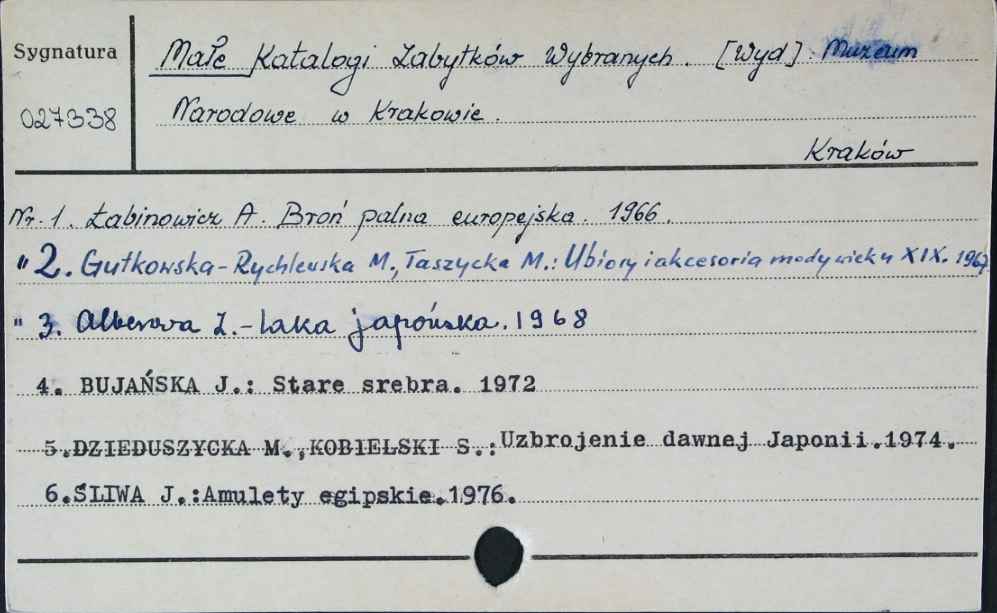 Sygnatura
027338
Małe Katalogi Zabytków Wybranych. [Wyd]. Muzeum
Narodowe w Krakowie.
Kraków
Nr. 1. Żabinowicz A. Broń palna europejska. 1966.
" 2. Gutkowska-Rychlewska M., Taszycka M.: Ubiory i akcesoria mody wieku XIX. 1967
" 3. Alberowa Z.- Laka japońska. 1968
4. BUJAŃSKA J.: Stare srebra. 1972
5.DZIEDUSZYCKA M.,KOBIELSKI S.:Uzbrojenie dawnej Japonii.1974.
6.ŚLIWA J.:Amulety egipskie.1976.